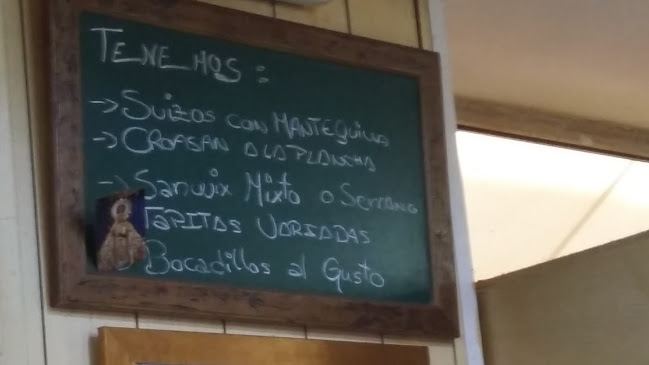 TENEMOS:
→ SUIZOS CON MANTEQUILLA
→ CROASAN A LA PLANCHA
→ Sanwix Mixto o Serrano
TAPITAS VARIADAS
Bocadillos al Gusto